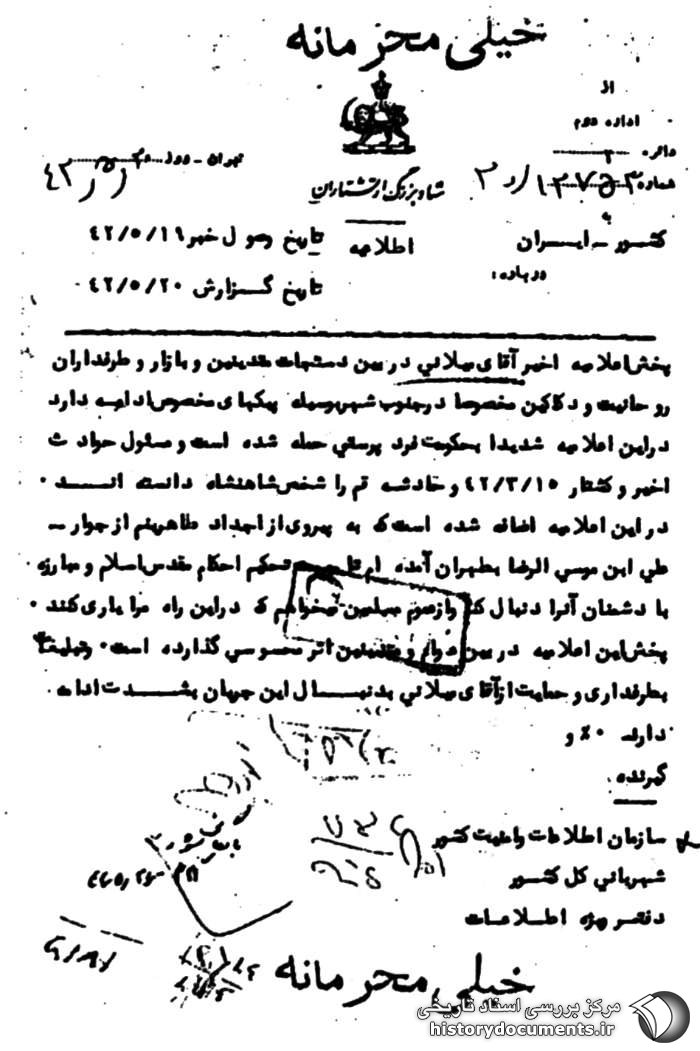 خیلی محرمانه
از
اداره دوم
دائره ۲
شماره
به
کشور - ایران
درباره:
شاه بزرگ ارتشتاران
اطلاعیه
تهران - مورد
تاریخ وصول خبر ۴۲/۵/۱۹
تاریخ گزارش ۴۲/۵/۲۰
پخش اعلامیه اخیر آقای میلانی در بین دستجات متدینین و بازار و طرفداران
روحانیت و دکاکین مخصوصا در جنوب شهر بوسیله پیکهای مخصوص ادامه دارد
دراین اعلامیه شدیدا بحکومت فرد پرستی حمله شده است و مسئول حوادث
اخیر و کشتار ۴۲/۳/۱۵ و حادثه قم را شخص شاهنشاه دانسته اند .
در این اعلامیه اضافه شده است که به پیروی از اجداد طاهرینم از جوار -
علی ابن موسی الرضا بطهران آمده ام تا تحکیم احکام مقدس اسلام و مبارزه
با دشمنان آنرا دنبال کنم و از عموم مسلمین میخواهم که دراین راه مرا یاری کنند .
پخش این اعلامیه در بین و متدینین اثر محسوسی گذارده است . و تبلیغات
بطرفداری و حمایت از آقای میلانی بدنبال این جریان بشدت ادامه
دارد . ۵٪ و
گیرنده
سازمان اطلاعات و امنیت کشور
شهربانی کل کشور
دفتر ویژه اطلاعات
خیلی محرمانه
مرکز بررسی اسناد تاریخی
historydocuments.ir